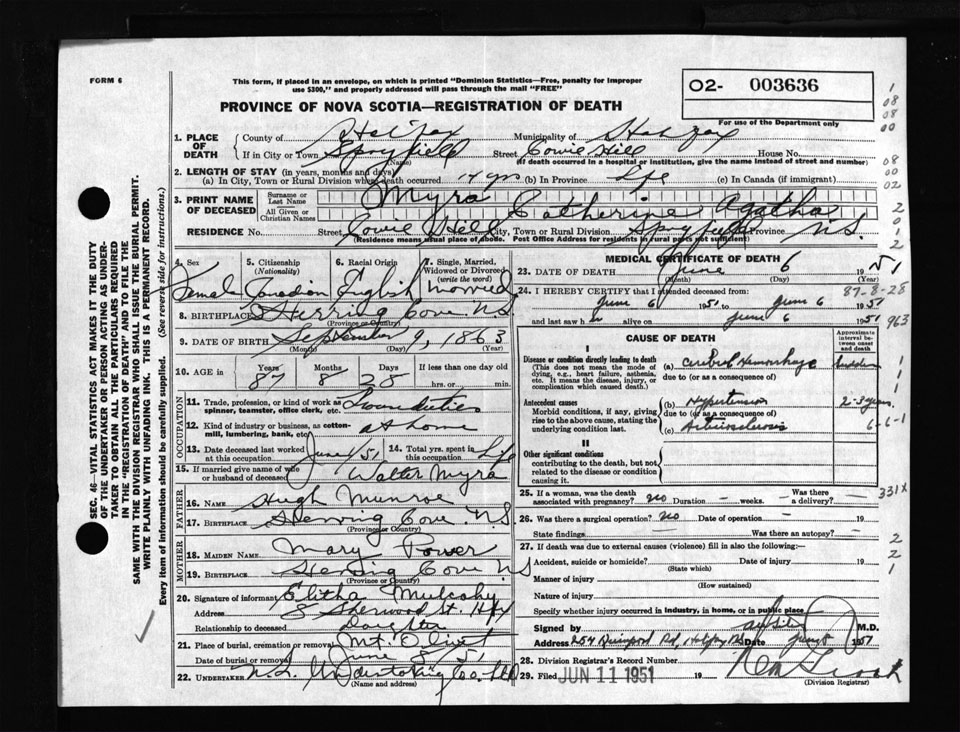 FORM 6
This form, if placed in an envelope, on which is printed "Dominion Statistics—Free, penalty for improper
use $300," and properly addressed will pass through the mail "FREE"
O2- 003636
For use of the Department only
PROVINCE OF NOVA SCOTIA—REGISTRATION OF DEATH
1. PLACE OF DEATH County of Halifax Municipality of Halifax
If in City or Town Spryfield (Name) Street Cowie Hill House No.
(If death occurred in a hospital or institution, give the name instead of street and number)
2. LENGTH OF STAY (in years, months and days)
(a) In City, Town or Rural Division where death occurred 17 yrs (b) In Province Life (c) In Canada (if immigrant)
3. PRINT NAME OF DECEASED Surname or Last Name Myra
All Given or Christian Names Catherine Agatha
RESIDENCE No. Street Cowie Hill City, Town or Rural Division Spryfield Province N.S.
(Residence means usual place of abode. Post Office Address for residents in rural parts not sufficient)
4. Sex Female
5. Citizenship (Nationality) Canadian
6. Racial Origin English
7. Single, Married, Widowed or Divorced (write the word) Married
8. BIRTHPLACE Herring Cove N.S.
(Province or Country)
9. DATE OF BIRTH September 9, 1863
(Month) (Day) (Year)
10. AGE Years 87 Months 8 Days 28 If less than one day old
hrs. or min.
OCCUPATION
11. Trade, profession, or kind of work as spinner, teamster, office clerk, etc.
12. Kind of industry or business, as cotton-mill, lumbering, bank, etc. at home
13. Date deceased last worked at this occupation June 1/51
14. Total yrs. spent in this occupation Life
15. If married give name of wife or husband of deceased Walter Myra
FATHER
16. NAME Hugh Munroe
17. BIRTHPLACE Herring Cove N.S.
(Province or Country)
MOTHER
18. MAIDEN NAME Mary Power
19. BIRTHPLACE Herring Cove N.S
(Province or Country)
20. Signature of informant Elitha Mulcahy
Address 8 Sherwood St. Hfx
Relationship to deceased Daughter
21. Place of burial, cremation or removal Mt. Olivet
Date of burial or removal June 8, 51
22. UNDERTAKER N.S. Undertaking Co. Ltd
(Name and address)
MEDICAL CERTIFICATE OF DEATH
23. DATE OF DEATH June 6 1951
(Month) (Day)
24. I HEREBY CERTIFY that I attended deceased from
June 6 1951 to June 6 1951
and last saw h alive on June 6 1951
CAUSE OF DEATH
Approximate interval between onset and death
I
Disease or condition directly leading to death
(This does not mean the mode of dying, e.g., heart failure, asthenia, etc. It means the disease, injury, or complication which caused death.)
(a) Cerebral Hemorrhage sudden
due to (or as a consequence of)
Antecedent causes
Morbid conditions, if any, giving rise to the above cause, stating the underlying condition last.
(b) Hypertension 2-3 years
due to (or as a consequence of)
(c) Arteriosclerosis
II
Other significant conditions
contributing to the death, but not related to the disease or condition causing it.
25. If a woman, was the death associated with pregnancy? no Duration — weeks. Was there a delivery? —
26. Was there a surgical operation? no Date of operation — 19
State findings Was there an autopsy? —
27. If death was due to external causes (violence) fill in also the following:—
Accident, suicide or homicide? Date of injury 19
(State which)
Manner of injury
(How sustained)
Nature of injury
Specify whether injury occurred in industry, in home, or in public place
Signed by M.D.
Address 254 Quinpool Rd, Halifax NS Date June 8 1951
28. Division Registrar's Record Number
29. Filed JUN 11 1951 19
(Division Registrar)
1
08
08
00
08
00
02
2
0
1
2
87-8-28
963
1
1
1
6-6-1
331X
2
2
1
SEC. 46 VITAL STATISTICS ACT MAKES IT THE DUTY
OF THE UNDERTAKER OR PERSON ACTING AS UNDER-
TAKER TO OBTAIN ALL THE PARTICULARS REQUIRED
IN THE "REGISTRATION OF DEATH" AND TO FILE THE
SAME WITH THE DIVISION REGISTRAR WHO SHALL ISSUE THE BURIAL PERMIT.
WRITE PLAINLY WITH UNFADING INK. THIS IS A PERMANENT RECORD.
Every item of information should be carefully supplied. (See reverse side for instructions.)